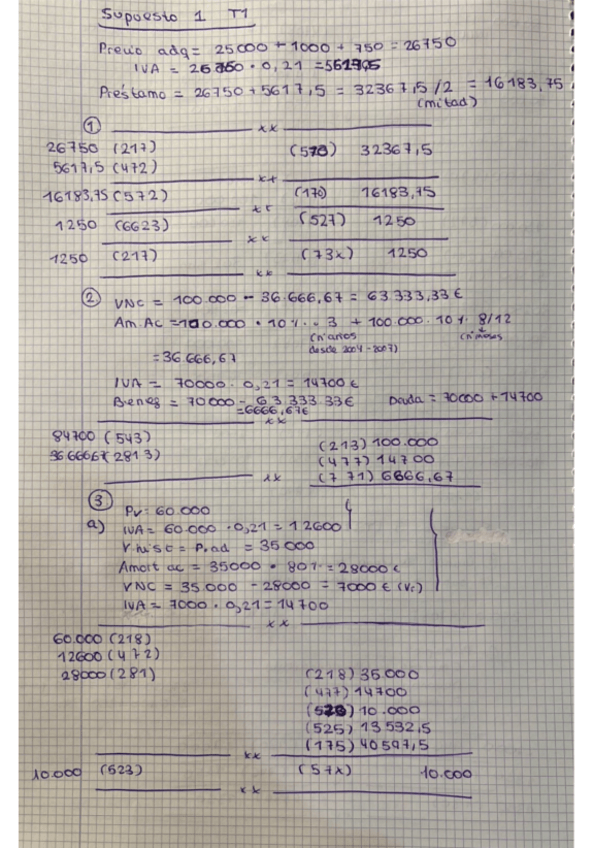 Supuesto 1 T1
Precio adq = 25000 + 1000 + 750 = 26750
IVA = 26750 · 0,21 = 5617,5
Préstamo = 26750 + 5617,5 = 32367,5 /2 = 16183,75
(mitad)
① xx
26750 (217) (570) 32367,5
5617,5 (472)
xx
16183,75 (572) (170) 16183,75
xx
1250 (6623) (527) 1250
xx
1250 (217) (73x) 1250
xx
② VNC = 100.000 - 36.666,67 = 63.333,33 €
Am. Ac = 100.000 · 10% · 3 + 100.000 · 10% 8/12
(nºaños (nºmeses)
desde 2004-2007)
= 36.666,67
IVA = 70000 · 0,21 = 14700 €
Benef = 70000 - 63.333.33€ Deuda = 70000 + 14700
= 6666,67€
xx
84700 (543) (213) 100.000
36.666,67 (2813) (477) 14700
(771) 6666,67
xx
③ Pv = 60.000
a) IVA = 60.000 · 0,21 = 12600
V hist = P. ad = 35000
Amort ac = 35000 · 80% = 28000 €
VNC = 35000 - 28000 = 7000 € (Vc)
IVA = 7000 · 0,21 = 14700
xx
60.000 (218)
12600 (472)
28000 (281) (218) 35.000
(477) 14700
(523) 10.000
(525) 13532,5
(175) 40597,5
xx
10.000 (523) (57x) 10.000
xx